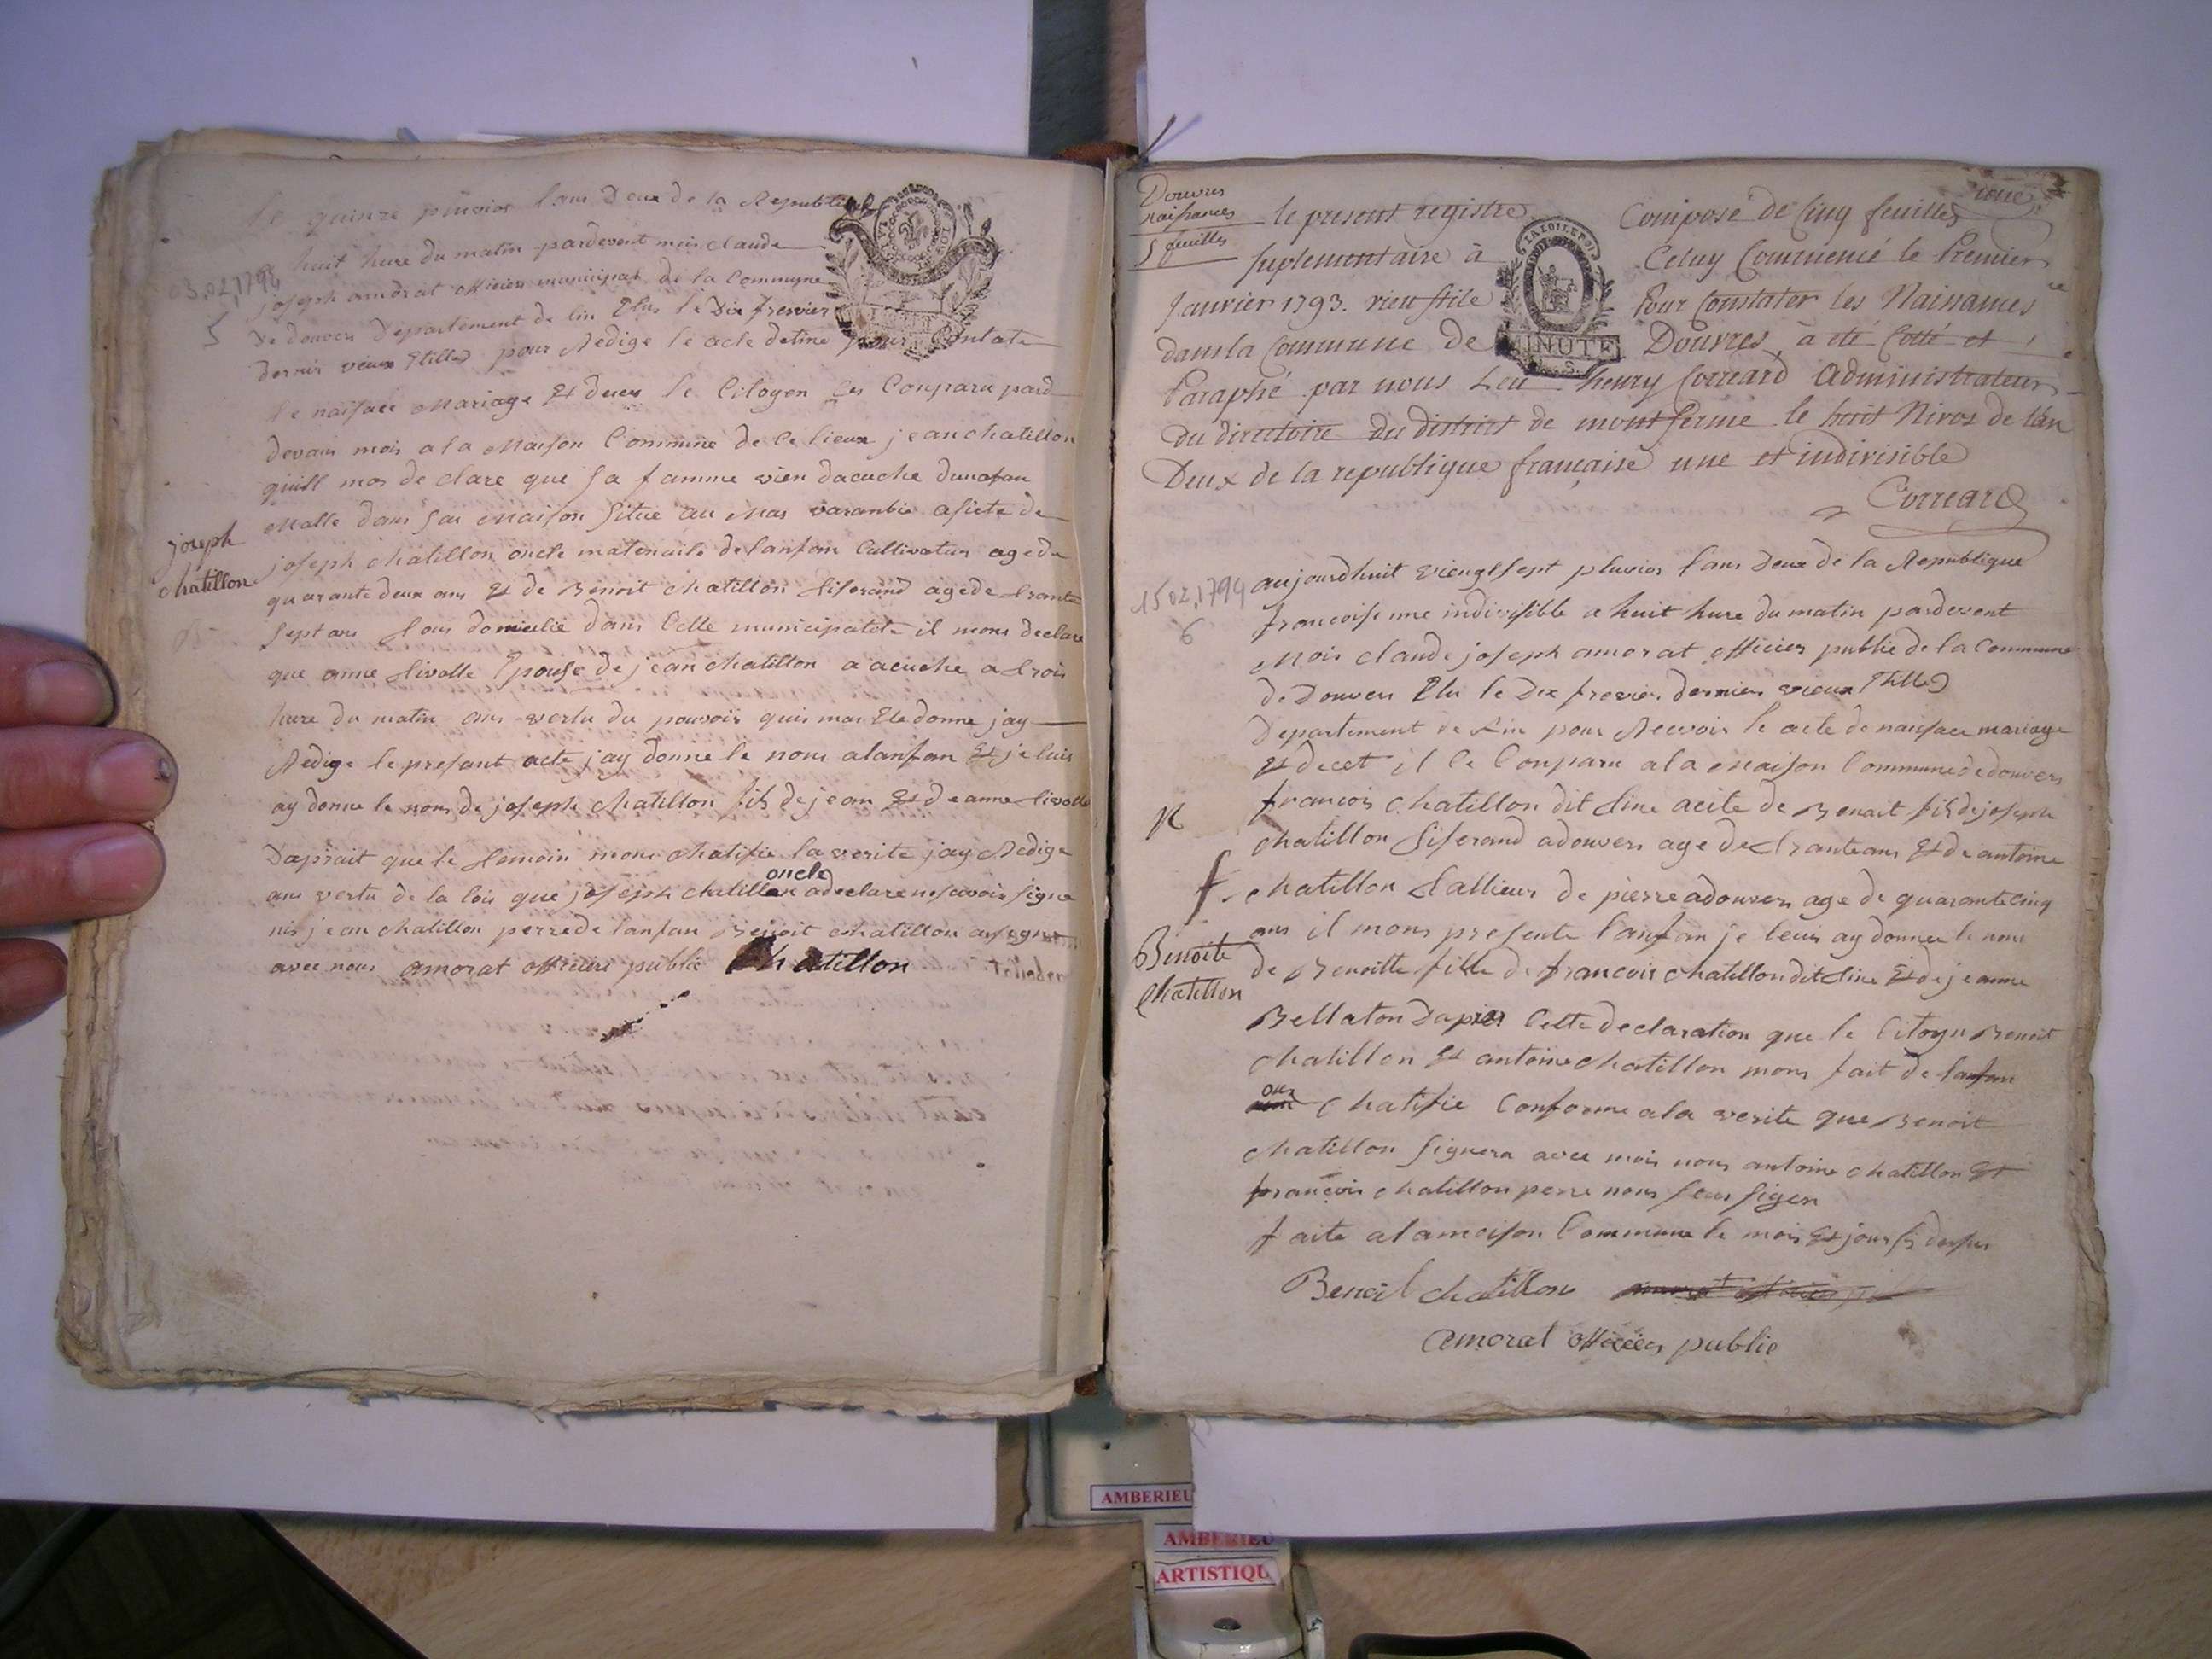 Le quinze pluvios lans Deux de la Republi
huit hure du matin pardevent mois claude
03,02,1794
joseph amorat officier municipat de la Commune
5
De douvers Departement de lin Elus le Dix frevier
dernir vieux Stilles pour Redige le acte detine pour Contate
le naisace Mariage Et deces le Citoyen Ces Conparu pard
devans mois a la Maison Commune de Ce lieux jean chatillon
quill mos de clare que sa famme vien dacuche dunofan
Malle dans sas Maison situe au Mas varanbie asiste de
joseph
chatillon
joseph chatillon oncle maternaile de lanfan Cultivatur age de
quarante deux ans Et de Benoit chatillon tiserand age de trante
sept ans tous domicilie dans Celle municipalite il mons declare
que anne tivolle Epouse de jean chatillon a acuche a trois
hure du matin ans vertu du pouvoir quis mas Ete donne jay
Redige le presant acte jay donne le nons a lanfan Et je luis
ay donne le nons de joseph chatillon fils de jean Et de anne tivolle
Daprait que le temoin mons chatifie la verite jay Redige
oncle
ans vertu de la lois que joseph chatillon a declare ne savoir signe
nis jean chatillon perre de lanfan Benoit chatillon a signe
avec nous amorat officier public Chatillon
Douvres
naissances
5 feuilles
le present registre Composé de Cinq feuilles
suplementaire à Celuy Commencé le Premier
Janvier 1793. vieu stile Pour Constater les Naissances
LA LOI LE ROI
MINUTE
dans la Commune de Douvres, à été Cotté et
Paraphé par nous Leu henry Correard Administrateur
du directoire du district de montferme le huit Nivos de l'an
Deux de la republique française une et indivisible
Correard
15 02,1794
6
aujourdhuit viengt sept pluvios lans Deux de la Republique
francoise une indivisible a huit hure du matin pardevent
Mois claude joseph amorat officier public de la Commune
de Douvers Elu le Dix frevier dernier vieux Stilles
Departement de Lin pour Recevoir le acte de naisace mariage
Et decet il Ce Conparu a la Maison Commune de douvers
N
francois chatillon dit tine acite de Benait fils de joseph
chatillon tiserand a douvers age de trante ans Et de antoine
f.
chatillon tallieur de pierre a douvers age de quarante cinq
ans il mons presente lanfan je leuis ay donner le nons
Benoite
Chatillon
de Benoitte fille de francois chatillon dit tine Et de jeanne
Bellaton Dapres Cette declaration que le Citoyn Benoit
chatillon Et antoine chatillon mons fait de lanfan
ons
chatifie Conforme a la verite que Benoit
chatillon signera avec mois nons antoine chatillon Et
francois chatillon perre nons seus signer
faite a la maison Commune le mois Et jour si desus
Benoit chatillon
amorat officier public
AMBERIEU
AMBERIEU
ARTISTIQU